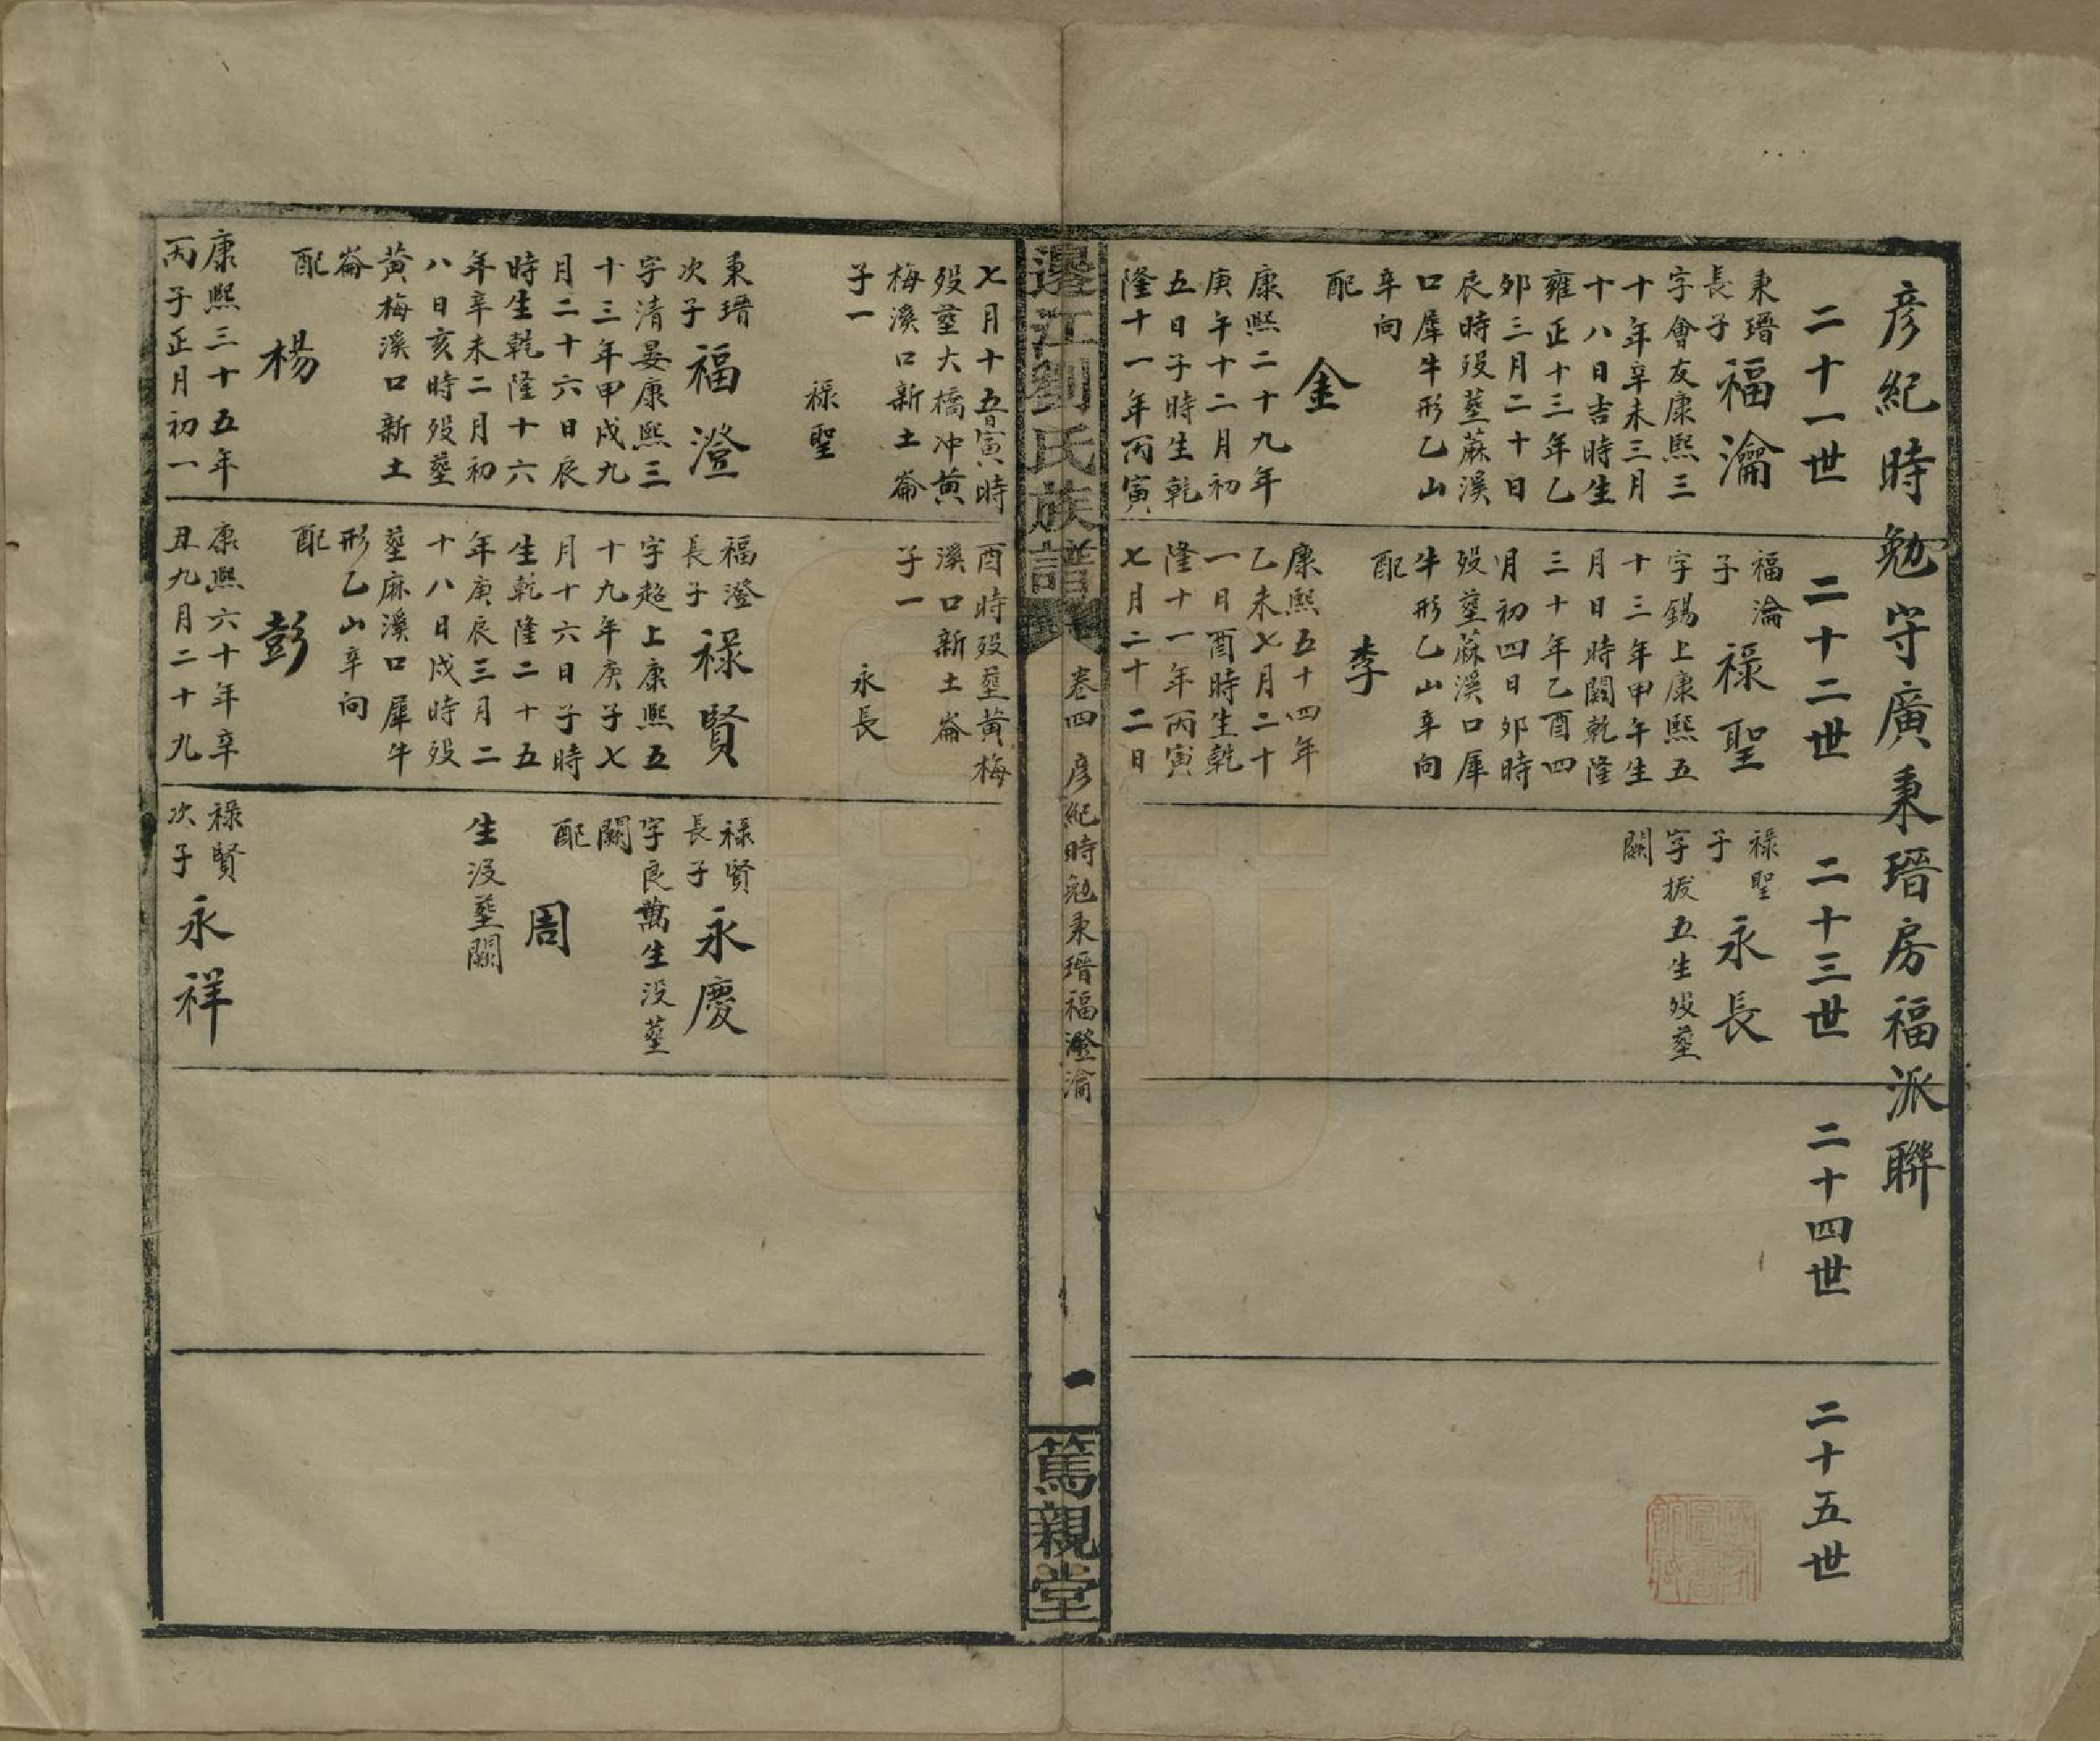 彥紀時勉守廣秉瑨房福派聯
二十一世
二十二世
二十三世
二十四世
二十五世
秉瑨
長子
福瀹
字會友康熙三
十年辛未三月
十八日吉時生
雍正十三年乙
卯三月二十日
辰時歿塟蔴溪
口犀牛形乙山
辛向
配
金
康熙二十九年
庚午十二月初
五日子時生乾
隆十一年丙寅
福瀹
子
祿聖
字錫上康熙五
十三年甲午生
月日時闕乾隆
三十年乙酉四
月初四日卯時
歿塟蔴溪口犀
牛形乙山辛向
配
李
康熙五十四年
乙未七月二十
一日酉時生乾
隆十一年丙寅
七月二十二日
祿聖
子
永長
字拔五生歿塟
闕
邊江劉氏族譜
卷四
彥紀時勉秉瑨福澄瀹
一
篤親堂
七月十五日寅時
歿塟大橋冲黄
梅溪口新土崙
子一
祿聖
秉瑨
次子
福澄
字清晏康熙三
十三年甲戌九
月二十六日辰
時生乾隆十六
年辛未二月初
八日亥時歿塟
黄梅溪口新土
崙
配
楊
康熙三十五年
丙子正月初一
酉時歿塟黄梅
溪口新土崙
子一
永長
福澄
長子
祿賢
字超上康熙五
十九年庚子七
月十六日子時
生乾隆二十五
年庚辰三月二
十八日戌時歿
塟麻溪口犀牛
形乙山辛向
配
彭
康熙六十年辛
丑九月二十九
祿賢
長子
永慶
字良萬生没塟
闕
配
周
生没塟闕
祿賢
次子
永祥